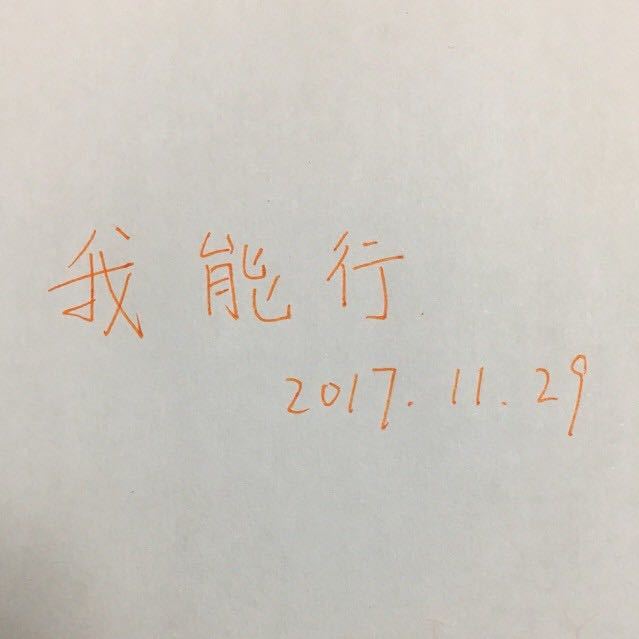 我能行
2017.11.29